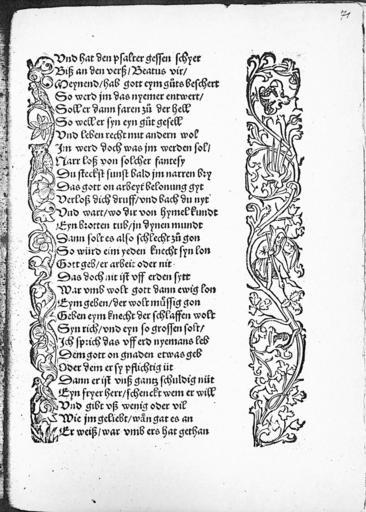 71
Vnd hat den psalter gessen schyer
Biß an den verß/Beatus vir/
Meynend/hab gott eym gůts beschert
So werd jm das nyemer entwert/
Soll er dann faren zů der hell
So well er syn eyn gůt gesell
Vnd leben recht mit andern wol
Jm werd doch was jm werden sol/
Narr loß von solcher fantesy
Du steckst sunst bald jm narren bry
Das gott on arbeyt belonung gyt
Verloß dich druff/vnd bach du nyt
Vnd wart/wo dir von hymel kundt
Eyn brotten tub/in dynen mundt
Dann solt es also schlecht zů gon
So würd eim yeden knecht syn lon
Gott geb/er arbeit oder nit
Das doch nit ist vff erden sytt
War vmb wolt gott dann ewig lon
Eym geben/der wolt müssig gon
Geben eym knecht der schlaffen wolt
Syn rich/vnd eyn so grossen solt/
Jch sprich das vff erd nyemans leb
Dem gott on gnaden etwas geb
Oder dem er sy pflichtig üt
Dann er ist vnß gantz schuldig nüt
Eyn fryer herr/schenckt wem er will
Vnd gibt vß wenig oder vil
Wie jm geliebt/wän gat es an
Er weiß/war vmb ers hat gethan